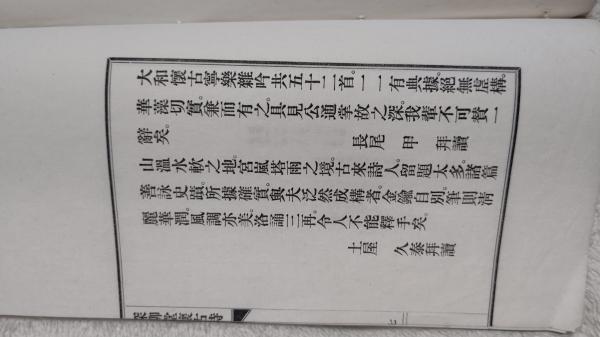 大和懷古寧樂雜吟共五十二首。一一有典據。絕無虛構。
華藻切實。兼而有之。具見公道掌故之深。我輩不可贊一
辭矣。
長尾 甲 拜讀
山溫水軟之地。宮嵐塔雨之境。古來詩人。留題太多。諸篇
善詠史蹟。所據確實。與夫泛然成構者。金鍮自別。筆則清
麗華潤。風調亦美。洛誦三再。令人不能釋手矣。
土屋 久泰拜讀